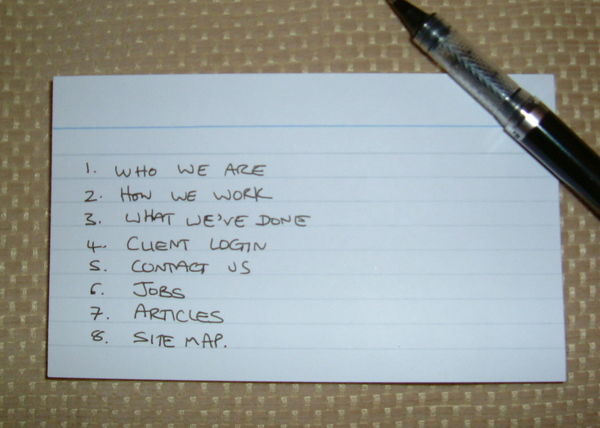 1. WHO WE ARE
2. HOW WE WORK
3. WHAT WE'VE DONE
4. CLIENT LOGIN
5. CONTACT US
6. JOBS
7. ARTICLES
8. SITE MAP.